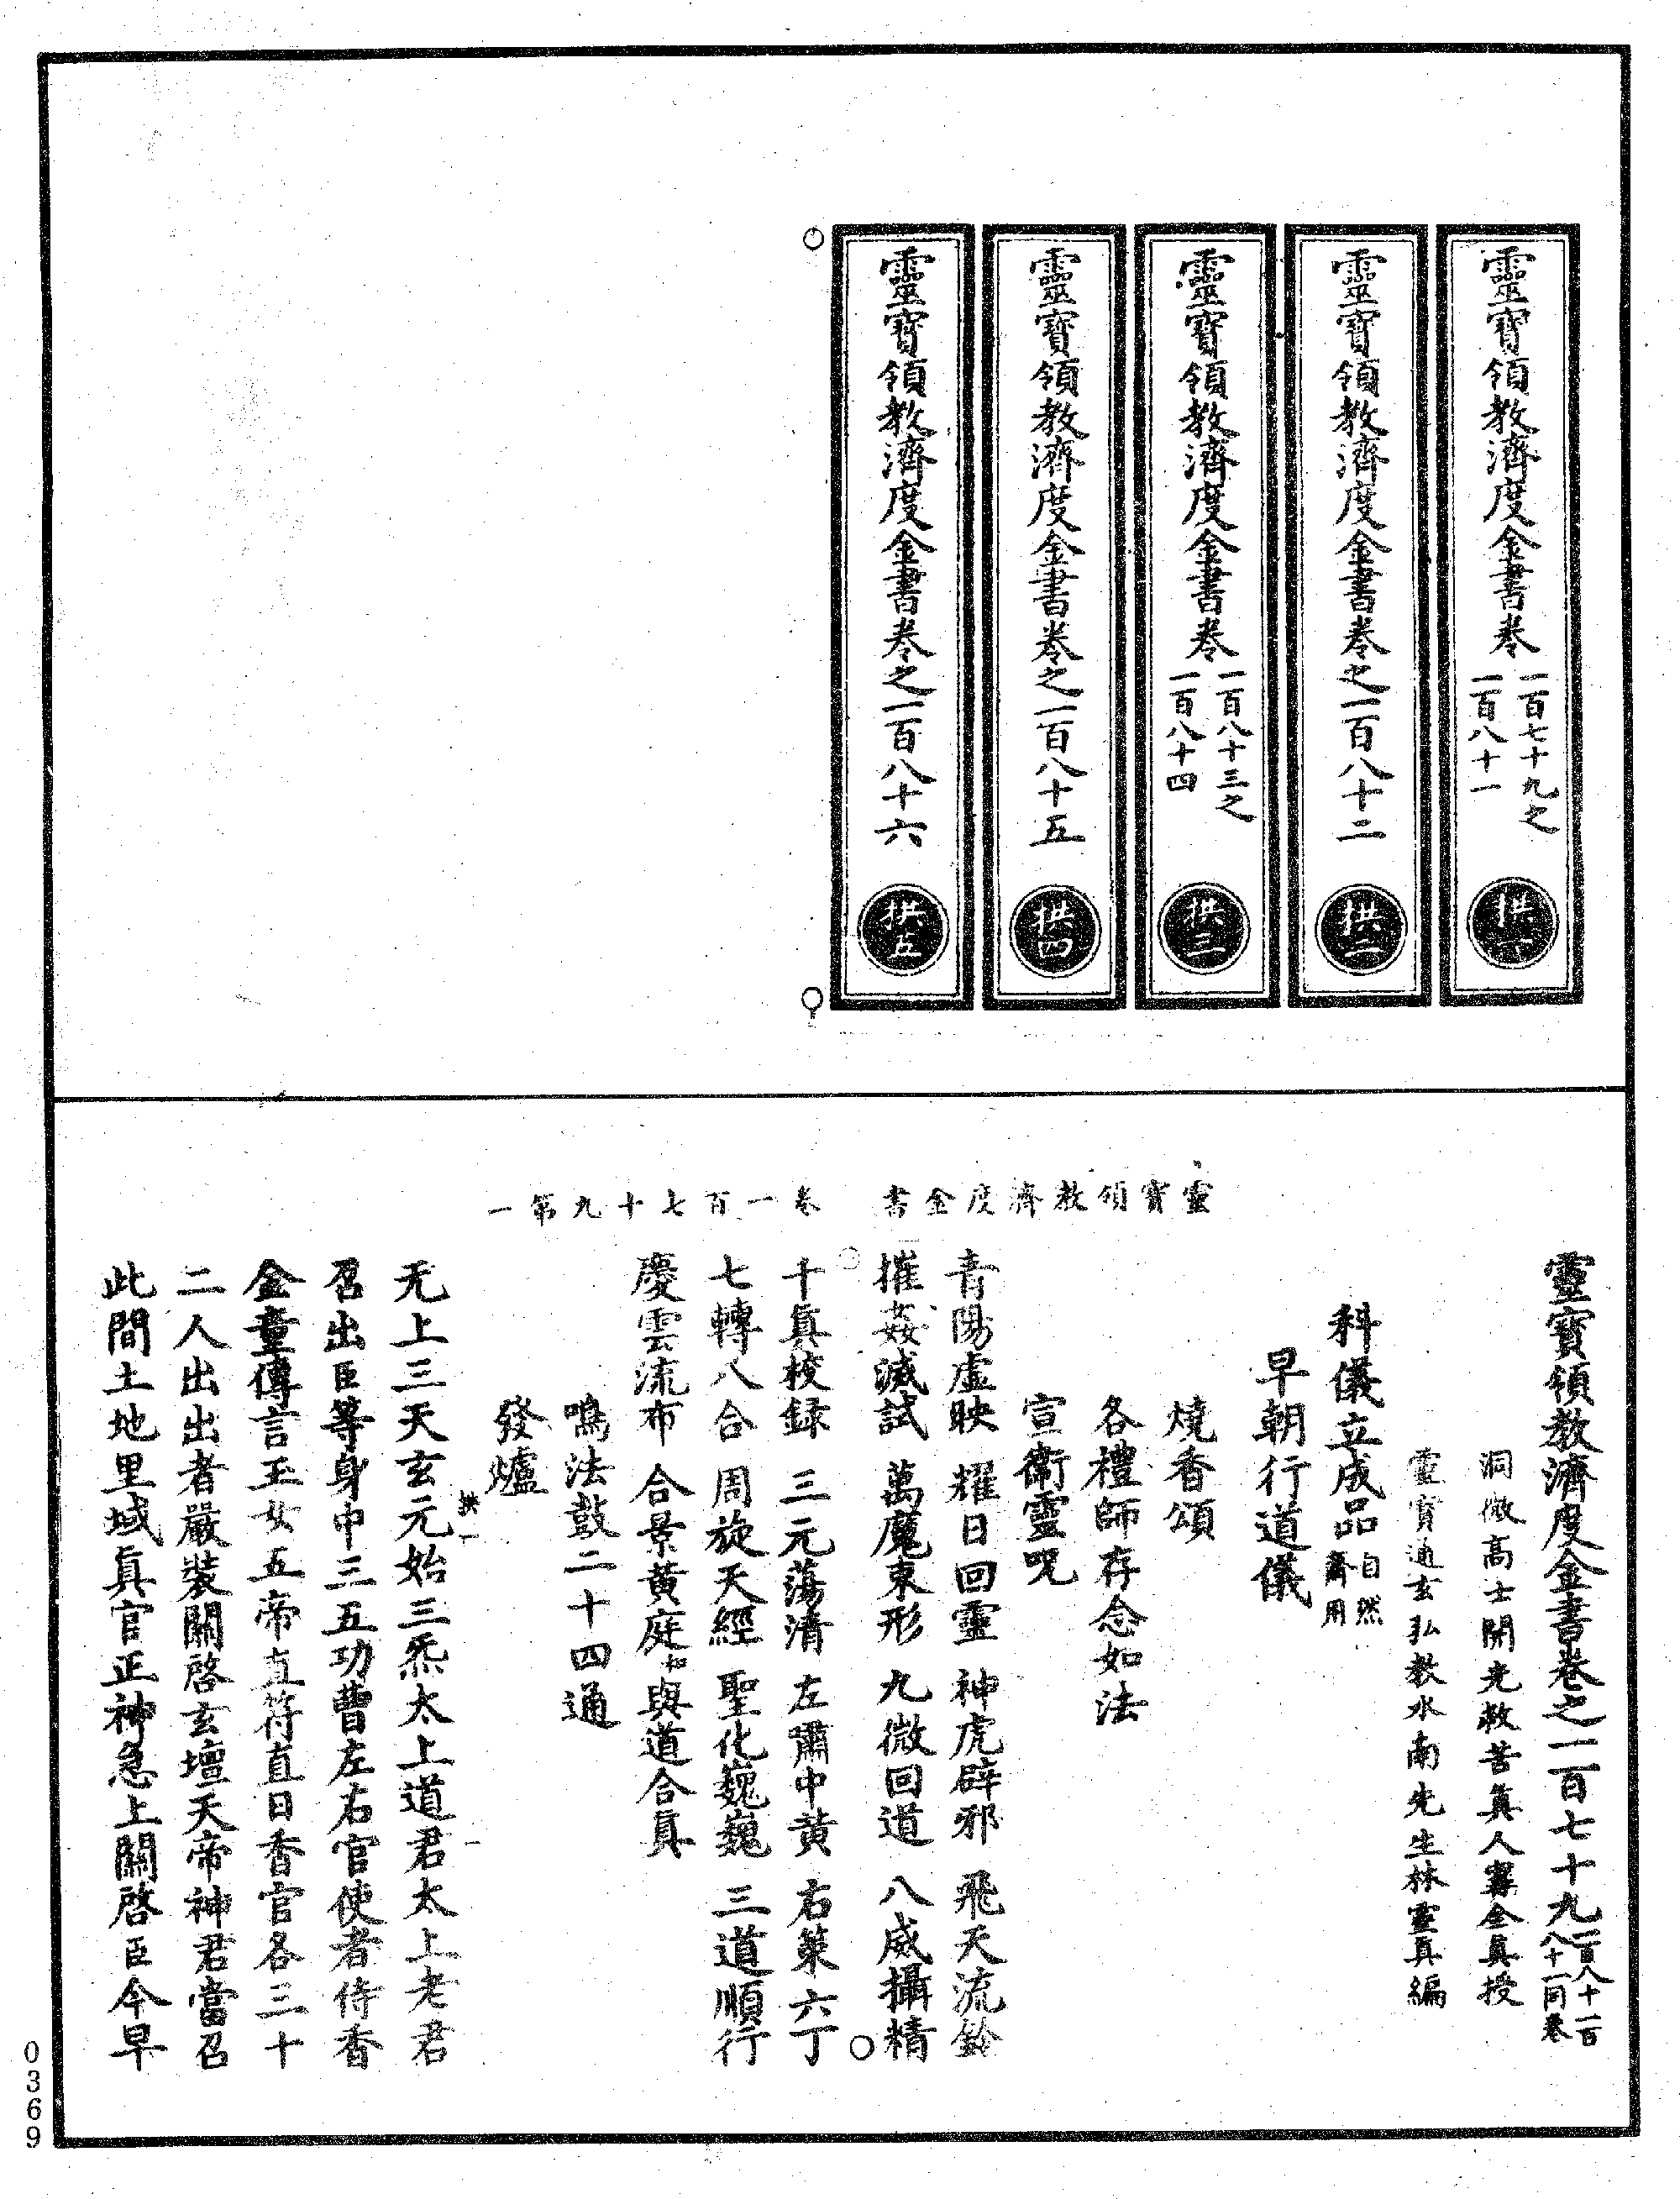 靈寶領教濟度金書卷一百七十九之一百八十一
拱一
靈寶領教濟度金書卷之一百八十二
拱二
靈寶領教濟度金書卷一百八十三之一百八十四
拱三
靈寶領教濟度金書卷之一百八十五
拱四
靈寶領教濟度金書卷之一百八十六
拱五
靈寶領教濟度金書 卷一百七十九第一
靈寶領教濟度金書卷之一百七十九一百八十一百八十一同卷
洞微高士開光救苦真人甯全真授
靈寶通玄弘教水南先生林靈真編
科儀立成品自然齋用
早朝行道儀
燒香頌
各禮師存念如法
宣衛靈咒
青陽虛映 耀日回靈 神虎辟邪 飛天流鈴
摧姦滅試 萬魔束形 九微回道 八威攝精
千真校録 三元蕩清 左嘯中黄 右策六丁
七轉八合 周旋天經 聖化巍巍 三道順行
慶雲流布 合景黄庭和與道合真
鳴法鼓二十四通
發爐
拱一
一
无上三天玄元始三炁太上道君太上老君
召出臣等身中三五功曹左右官使者侍香
金童傳言玉女五帝直符直日香官各三十
二人出出者嚴裝關啓玄壇天帝神君當召
此間土地里域真官正神急上關啓臣今早
0369